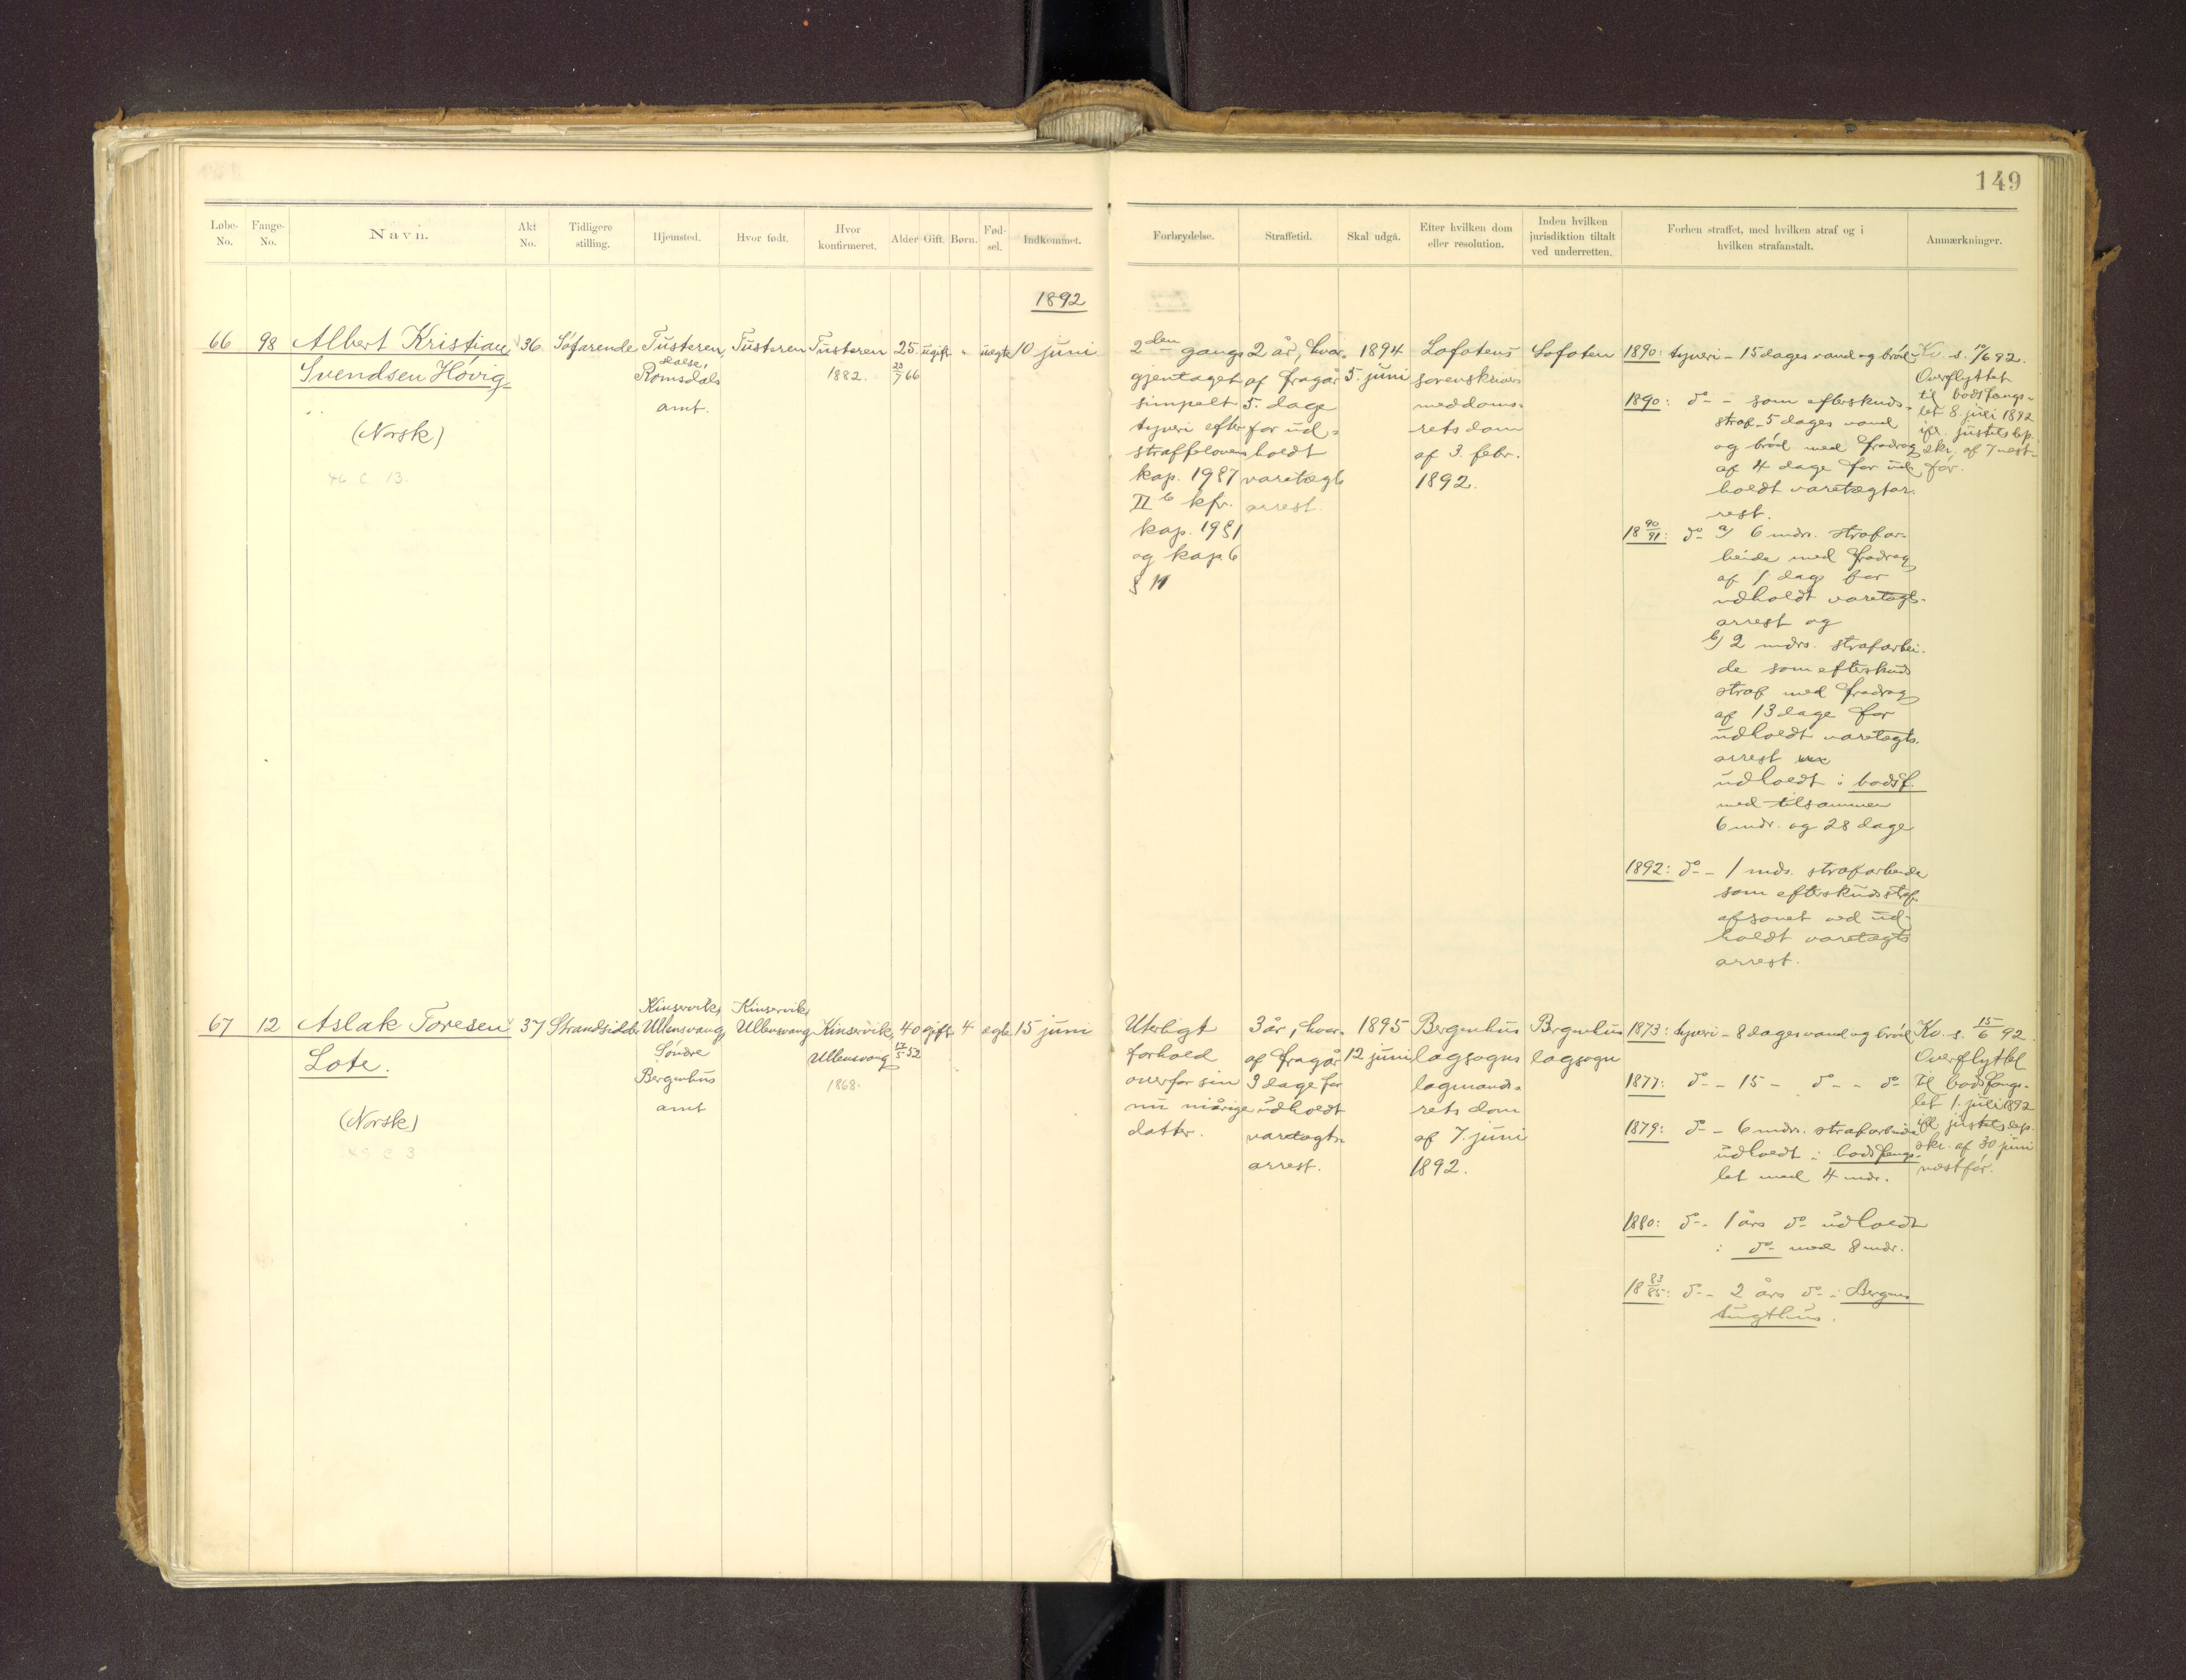 149
Løbe-No. Fange-No. Navn. Akt No. Tidligere stilling. Hjemsted. Hvor født. Hvor konfirmeret. Alder Gift. Børn. Fød-sel. Indkommet.
Forbrydelse. Straffetid. Skal udgå. Efter hvilken dom eller resolution. Inden hvilken jurisdiktion tiltalt ved underretten. Forhen straffet, med hvilken straf og i hvilken strafanstalt. Anmærkninger.
1892
66 98 Albert Kristian 36 Søfarende Tusteren, Tusteren Tusteren 25 ugift " uægte 10 juni
Svendsen Høvig 1882. 23/7 66
Romsdals
amt.
(Norsk)
46 C 13.
2den gangs
gjentaget
simpelt
tyveri efter
straffelovens
kap. 19§7
II b kfr.
kap. 19§1
og kap. 6
§ 11
2 år, hvor-
af fragår
5. dage
for ud-
holdt
varetægts
arrest.
1894
5. juni
Lofotens
sorenskriver
meddoms-
rets dom
af 3. febr.
1892.
Lofoten
1890: tyveri - 15 dages vand og brød
1890: do - som efterskuds-
straf - 5 dages vand
og brød med fradrag
af 4 dage for ud-
holdt varetægtar-
rest.
18 90/91: do a) 6 mdrs. strafar-
beide med fradrag
af 1 dag for
udholdt varetægts-
arrest og
b) 2 mdrs. strafarbei-
de som efterskuds
straf med fradrag
af 13 dage for
udholdt varetægts-
arrest
udholdt i bodsf.
med tilsammen
6 mdr. og 28 dage
1892: do - 1 mds. strafarbeide
som efterskudsstraf
afsonet ved ud-
holdt varetægts
arrest.
Kv. s. 10/6 92.
Overflyttet
til bodsfængs-
let 8. juli 1892
ifl. justitsdep.
skr. af 7 næst-
før.
67 12 Aslak Toresen 37 Strandsidder Kinservik, Kinservik, Kinservik, 40 gift 4 ægte 15 juni
Lote.
Ullensvang,
Søndre
Bergenhus
amt
Ullensvang
Ullensvang 17/5 52
1868.
(Norsk)
Uterligt
forhold
overfor sin
nu niårige
datter.
3 år, hvor-
af fragår
3 dage for
udholdt
varetægts-
arrest.
1895
12 juni
Bergenhus
lagsogns
lagmands-
rets dom
af 7. juni
1892.
Bergenhus
lagsogn
1873: tyveri - 8 dages vand og brød
1877: do - 15 - do - - do
1879: do - 6 mdrs. strafarbeide
udholdt i bodsfængs-
let med 4 mdr.
1880: do - 1 års do udholdt
i do med 8 mdr.
18 83/85: do - 2 års do i Bergens
tugthus.
Kv. s. 15/6 92.
Overflyttet
til bodsfængs-
let 1. juli 1892
ifl. justitsdep.
skr. af 30 juni
næstfør.